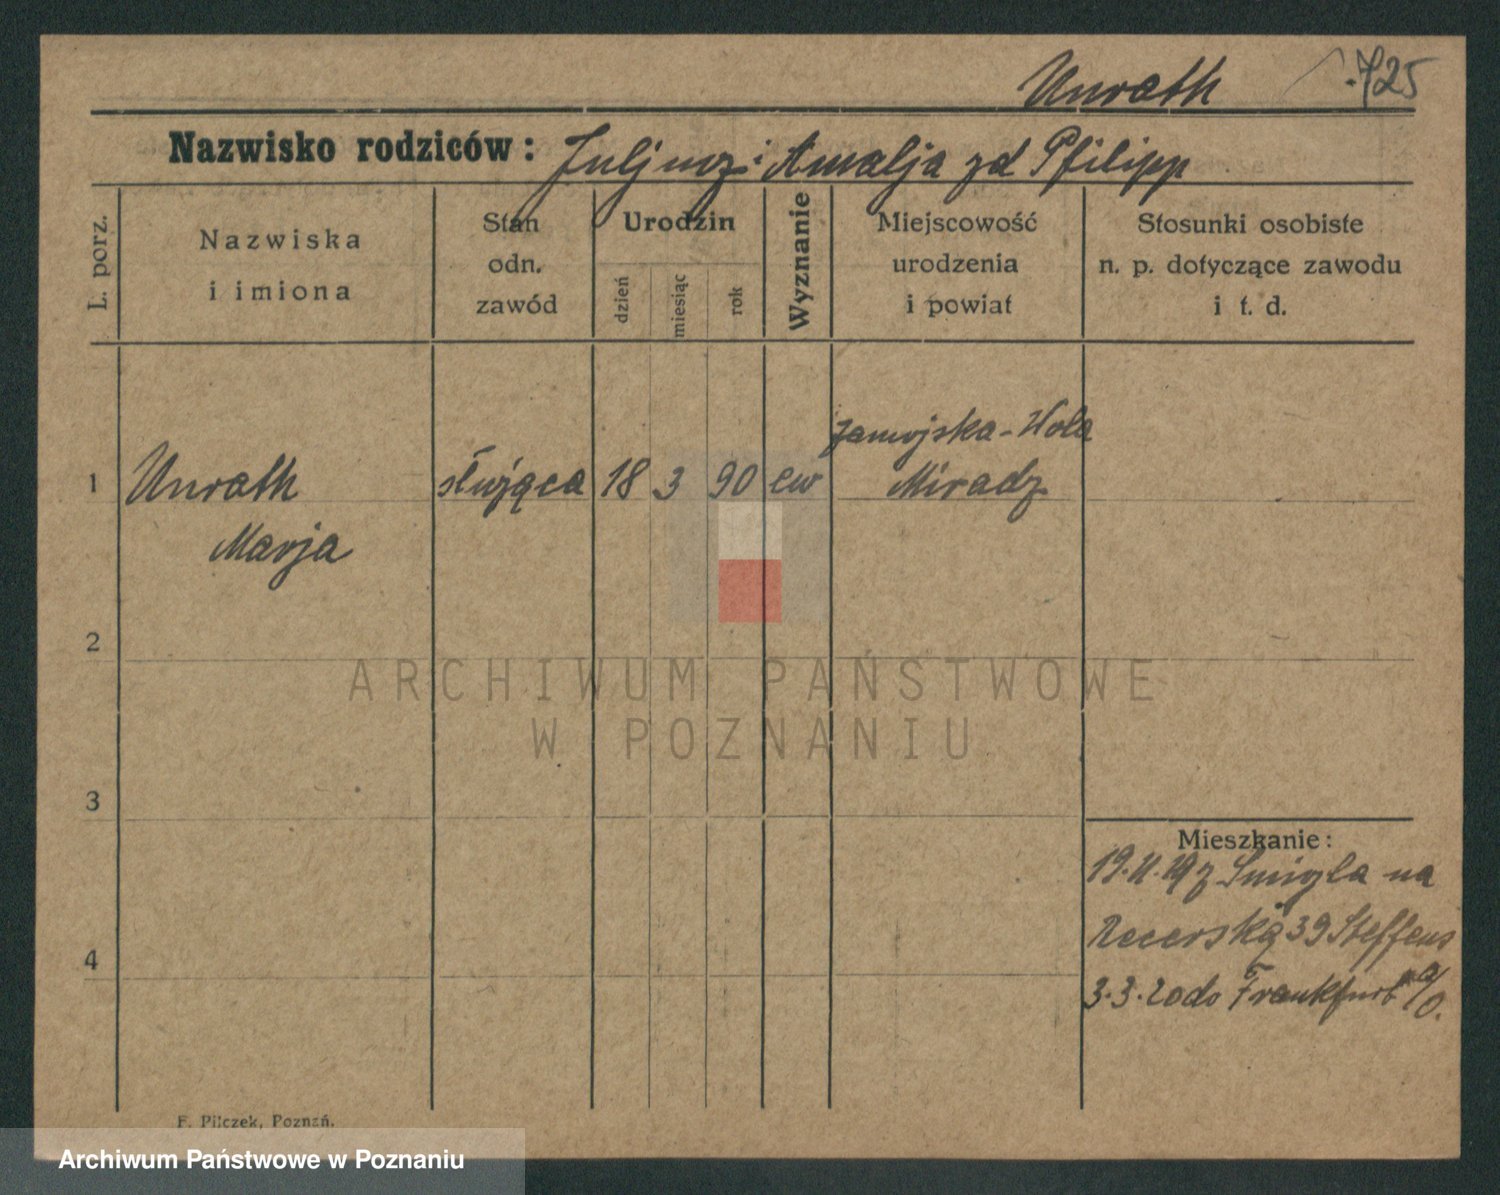 Unrath 725
Nazwisko rodziców: Juljusz i Amalja zd Pfilipp
L. porz.
Nazwiska
i imiona
Stan
odn.
zawód
Urodzin
dzień
miesiąc
rok
Wyznanie
Miejscowość
urodzenia
i powiat
Stosunki osobiste
n. p. dotyczące zawodu
i t. d.
zamojska-Wola
1 Unrath służąca 18 3 90 ew Miradz
Marja
2
ARCHIWUM PAŃSTWOWE
W POZNANIU
3
Mieszkanie:
19.11.19 z Śmigla na
39 Steffens
4
3.3.20 do Frankfurt a/O.
F. Pilczek, Poznań.
Archiwum Państwowe w Poznaniu